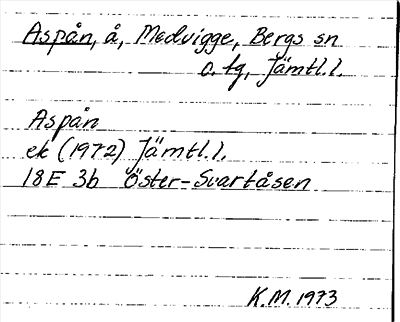 Aspån, å, Medvigge, Bergs sn
o. tg, Jämtl.l.
Aspån
ek (1972) Jämtl.l.
18E 3b Öster-Svartåsen
K.M. 1973